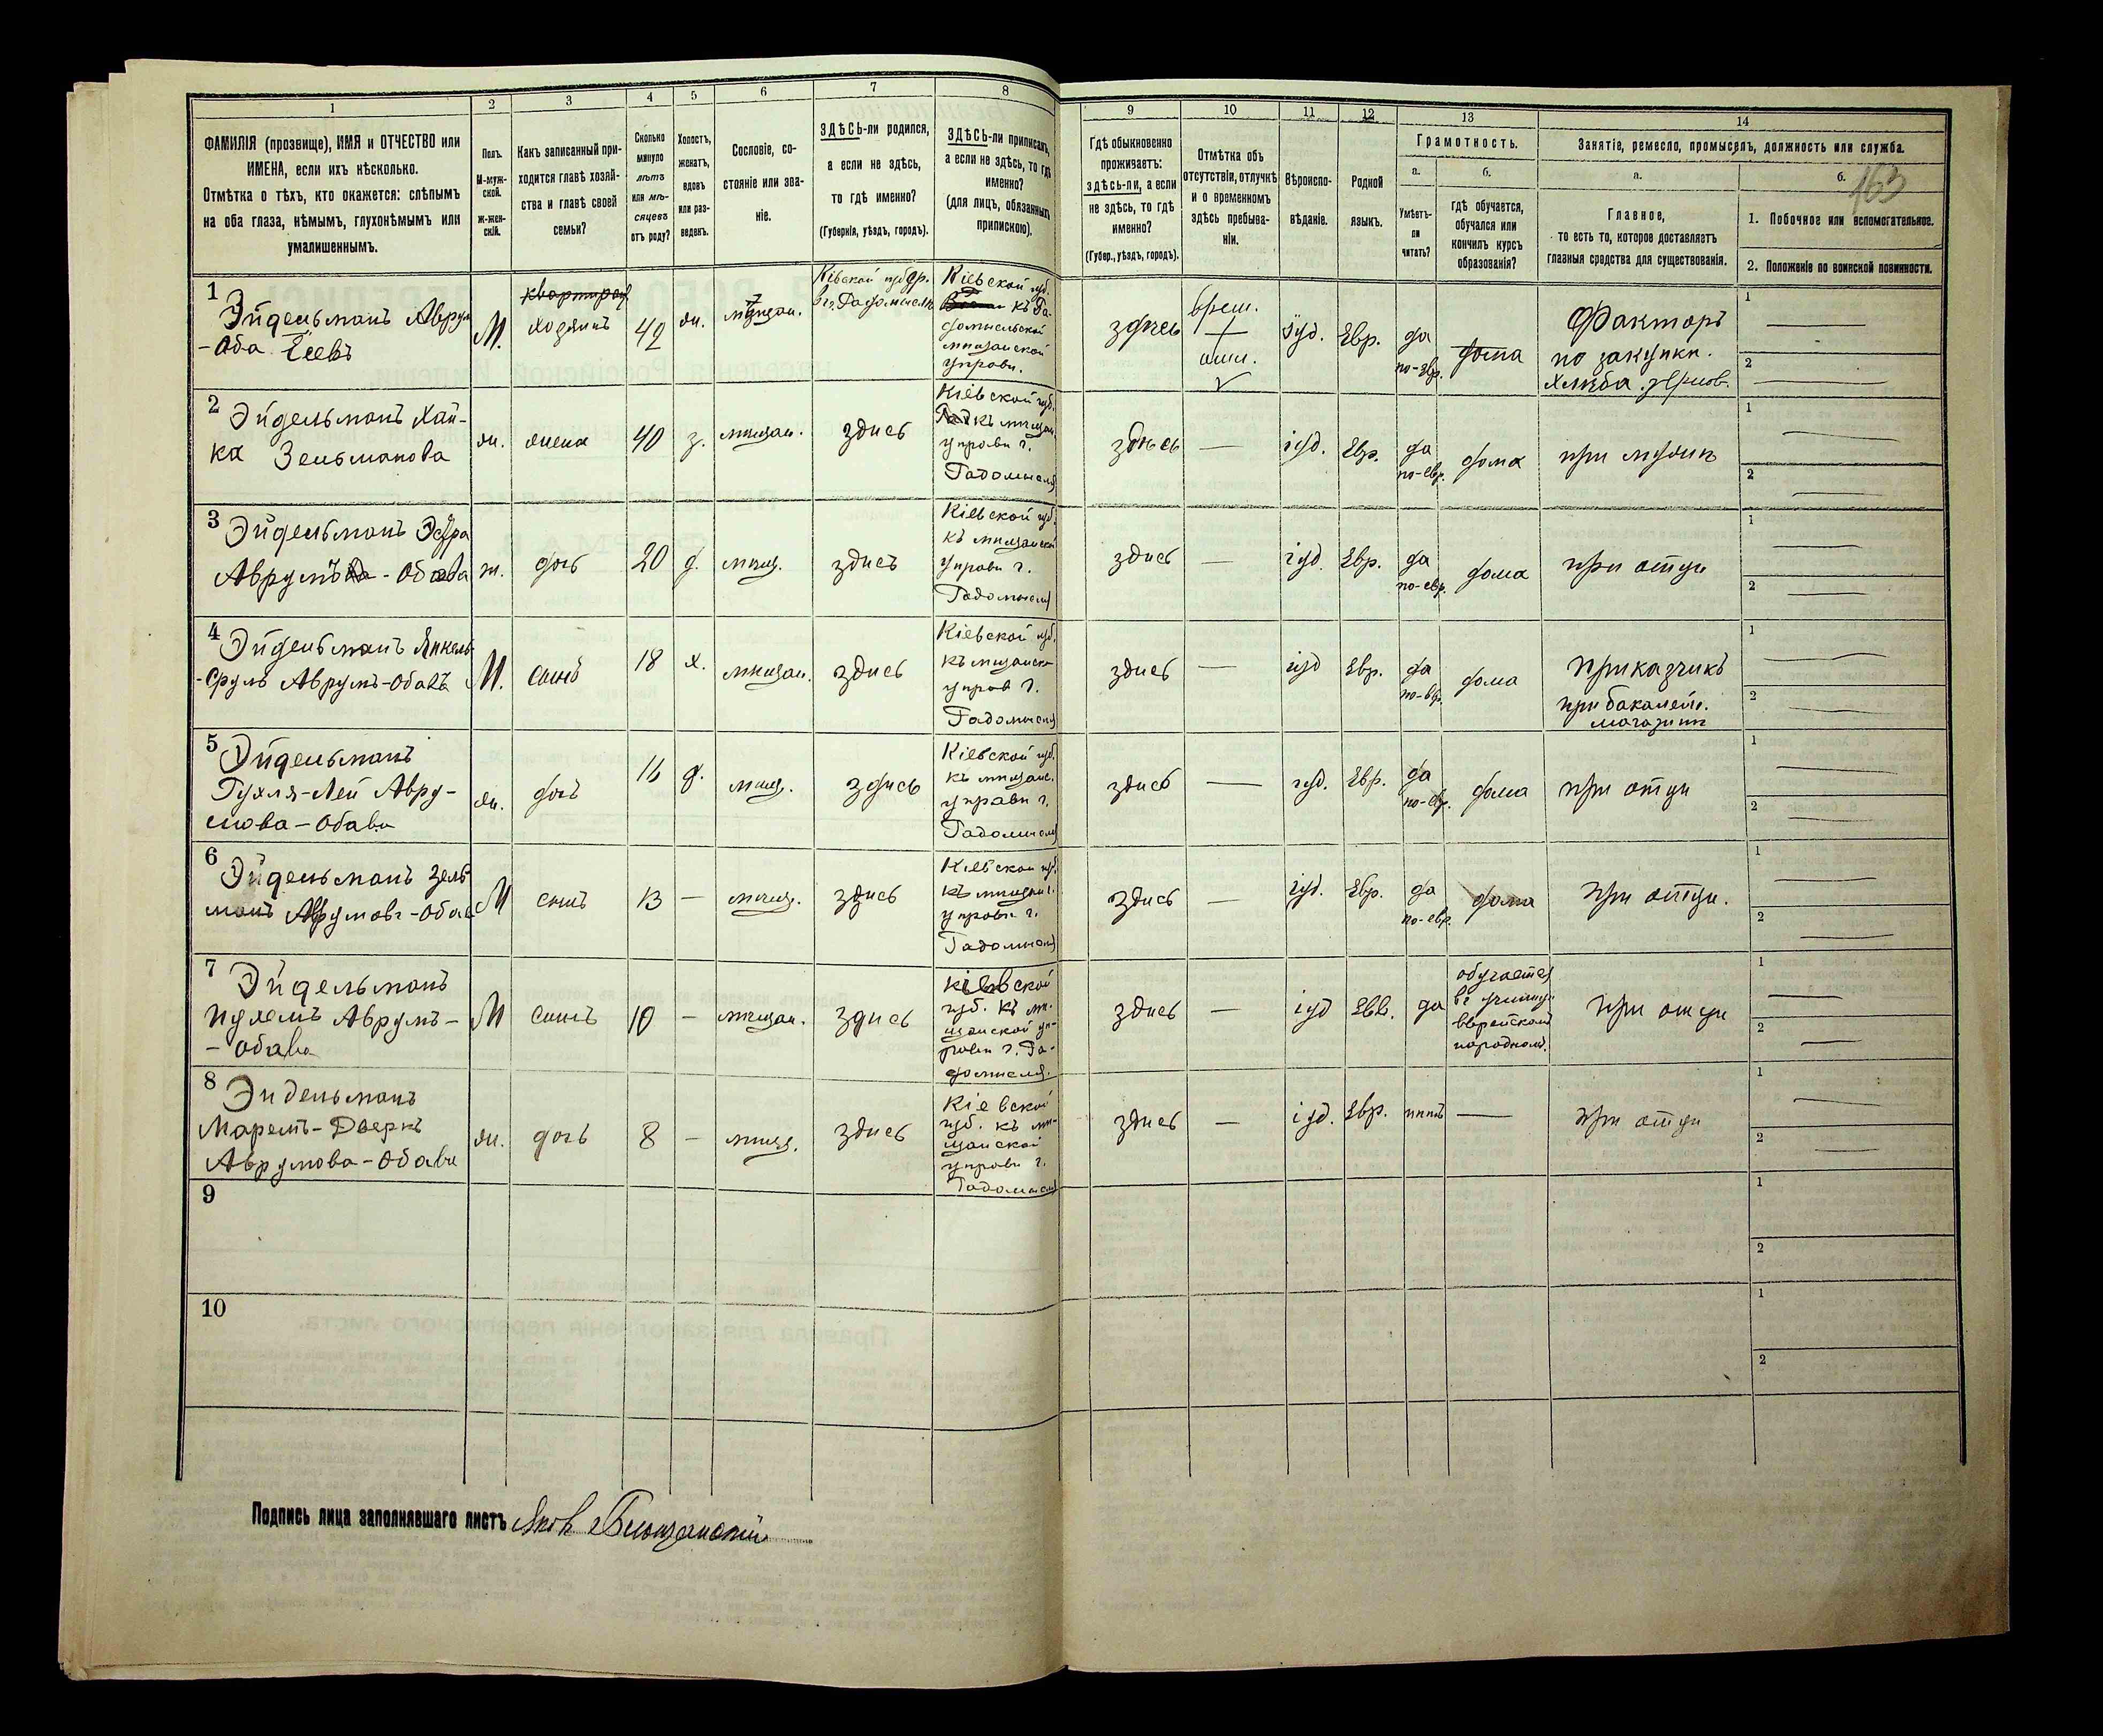 1
2
3
4
5
6
7
8
ФАМИЛІЯ (прозвище), ИМЯ и ОТЧЕСТВО или
ИМЕНА, если ихъ нѣсколько.
Отмѣтка о тѣхъ, кто окажется: слѣпымъ
на оба глаза, нѣмымъ, глухонѣмымъ или
умалишеннымъ.
Полъ.
М-муж-
ской.
ж-жен-
скій.
Какъ записанный при-
ходится главѣ хозяй-
ства и главѣ своей
семьи?
Сколько
минуло
лѣтъ
или мѣ-
сяцевъ
отъ роду?
Холостъ,
женатъ,
вдовъ
или раз-
веденъ.
Сословіе, со-
стояніе или зва-
ніе.
ЗДѢСЬ-ли родился,
а если не здѣсь,
то гдѣ именно?
(Губернія, уѣздъ, городъ).
ЗДѢСЬ-ли приписанъ,
а если не здѣсь, то гдѣ
именно?
(для лицъ, обязанныхъ
припискою).
9
10
11
12
13
14
Гдѣ обыкновенно
проживаетъ:
здѣсь-ли, а если
не здѣсь, то гдѣ
именно?
(Губер., уѣздъ, городъ).
Отмѣтка объ
отсутствіи, отлучкѣ
и о временномъ
здѣсь пребыва-
ніи.
Вѣроиспо-
вѣданіе.
Родной
языкъ.
Грамотность.
а.
Умѣетъ-
ли
читать?
б.
гдѣ обучается,
обучался или
кончилъ курсъ
образованія?
Занятіе, ремесло, промыселъ, должность или служба.
а.
Главное,
то есть то, которое доставляетъ
главныя средства для существованія.
б.
163
1. Побочное или вспомогательное.
2. Положеніе по воинской повинности.
1
Эйдельманъ Аврум
-Оба
М.
хозяинъ
42
жен.
мѣщан.
Кіевской губ.
здѣсь
врем.
іуд.
Евр.
да
по-евр.
дома
Факторъ
по закупки
хлѣба
1
2
2
Эйдельманъ Хай-
ка Зельманова
ж.
жена
40
з.
мѣщан.
здѣсь
Кіевской губ.
управы г.
Радомысля
здѣсь
—
іуд.
Евр.
да
по-евр.
дома
при мужѣ
1
2
3
Эйдельманъ
ж.
дочь
20
д.
мѣщ.
здѣсь
Кіевской губ.
къ мѣщанской
управы г.
Радомысля
здѣсь
—
іуд.
Евр.
да
по-евр.
дома
при отцѣ
1
2
4
Эйдельманъ Янкель
-Сруль Аврумъ-Обавъ
М.
сынъ
18
х.
мѣщан.
здѣсь
Кіевской губ.
Радомысля
здѣсь
—
іуд
Евр.
да
по-евр.
дома
Приказчикъ
при бакалейн.
магазинѣ
1
2
5
Эйдельманъ
ж.
дочь
д.
мѣщ.
здѣсь
Кіевской губ.
къ мѣщанс.
управы г.
Радомысля
здѣсь
—
іуд.
Евр.
да
по-евр.
дома
при отцѣ
1
2
6
Эйдельманъ Зель-
манъ
М
сынъ
13
—
мѣщ.
здѣсь
Кіевской губ.
управы г.
Радомысля
здѣсь
—
іуд.
Евр.
да
по-евр.
дома
при отцѣ.
1
2
7
Эйдельманъ
М
сынъ
10
—
мѣщан.
здѣсь
Кіевской
губ. къ мѣ-
щанской уп-
равы г. Ра-
домысля.
здѣсь
—
іуд
Евр.
да
обучается
еврейском
народном.
при отцѣ
1
2
8
Эйдельманъ
Аврумова-Обава
ж.
дочь
8
—
мѣщ.
здѣсь
Кіевской
губ. къ мѣ-
щанской
управы г.
Радомысля
здѣсь
—
іуд.
Евр.
нѣтъ
—
при отцѣ
1
2
9
1
2
10
1
2
Подпись лица заполнявшаго листъ